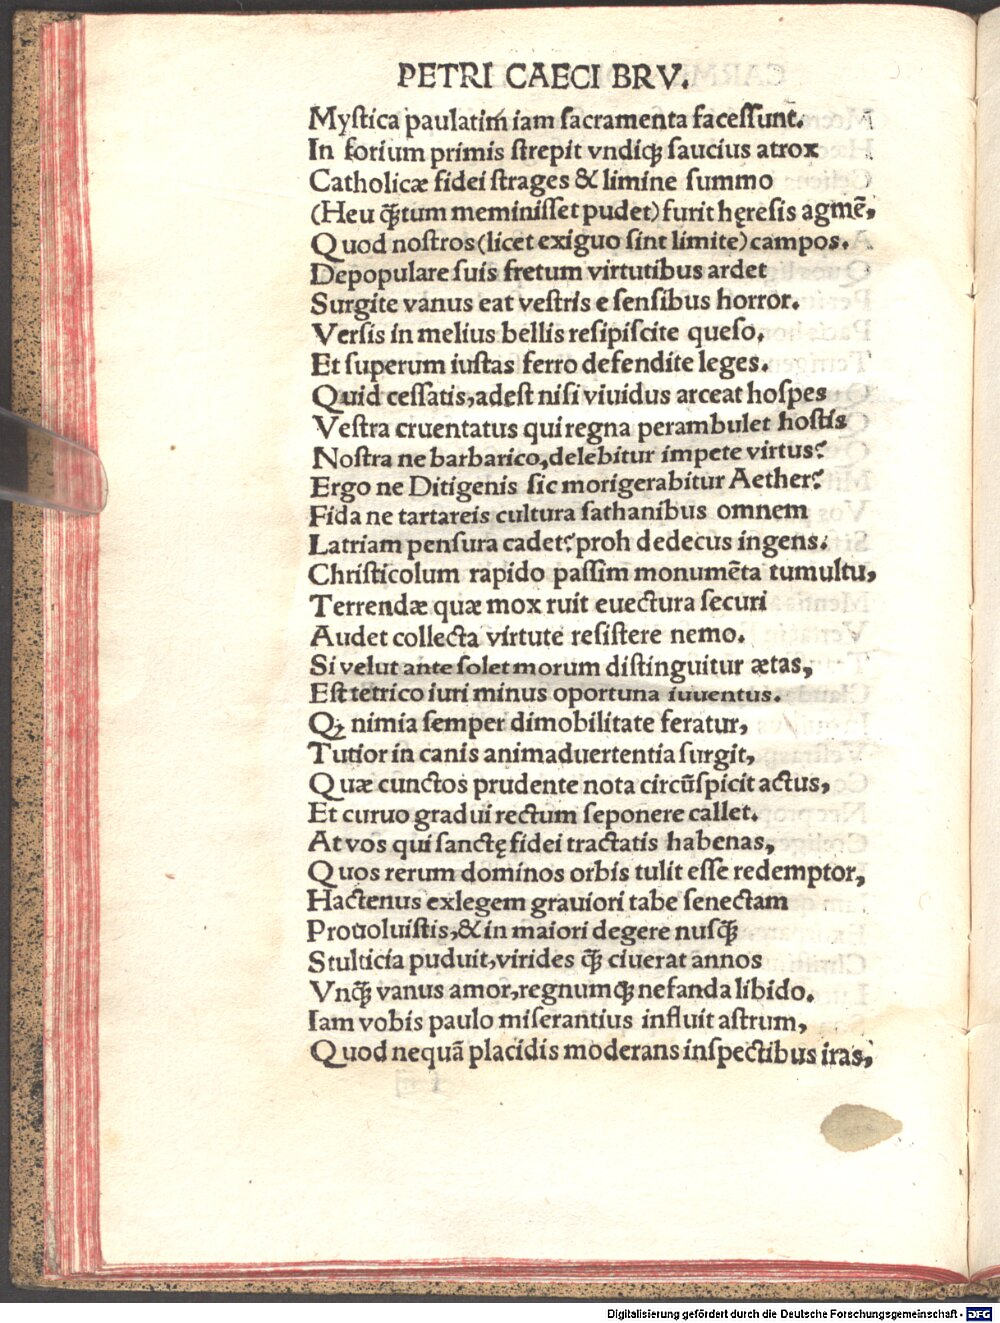 PETRI CAECI BRV.
Myſtica paulatim iam ſacramenta faceſſunt.
In forium primis ſtrepit vndiqꝫ ſaucius atrox
Catholicæ fidei ſtrages & limine ſummo
(Heu qꝫ̃tum meminiſſet pudet) furit hęreſis agmẽ,
Quod noſtros (licet exiguo ſint limite) campos.
Depopulare ſuis fretum virtutibus ardet
Surgite vanus eat veſtris e ſenſibus horror.
Verſis in melius bellis reſipiſcite queſo.
Et ſuperum iuſtas ferro defendite leges.
Quid ceſſatis, adeſt niſi viuidus arceat hoſpes
Veſtra cruentatus qui regna perambulet hoſtis
Noſtra ne barbarico, delebitur impete virtus?
Ergo ne Ditigenis ſic morigerabitur Aether?
Fida ne tartareis cultura ſathanibus omnem
Latriam penſura cadet? proh dedecus ingens.
Chriſticolum rapido paſſim monumẽta tumultu,
Terrendæ quæ mox ruit euectura ſecuri
Audet collecta virtute reſiſtere nemo.
Si velut ante ſolet morum diſtinguitur ætas,
Eſt tetrico iuri minus oportuna iuuentus.
Qꝫ nimia ſemper dimobilitate feratur,
Tutior in canis animaduertentia ſurgit,
Quæ cunctos prudente nota circũſpicit actus,
Et curuo gradui rectum ſeponere callet.
At vos qui ſanctę fidei tractatis habenas,
Quos rerum dominos orbis tulit eſſe redemptor,
Hactenus exlegem grauiori tabe ſenectam
Prouoluiſtis, & in maiori degere nuſqꝫ̃
Stulticia puduit, virides qꝫ̃ ciuerat annos
Vnqꝫ̃ vanus amor, regnumqꝫ nefanda libido.
Iam vobis paulo miſerantius influit aſtrum,
Quod nequã placidis moderans inſpectibus iras,
Digitalisierung gefördert durch die Deutsche Forschungsgemeinschaft - DFG